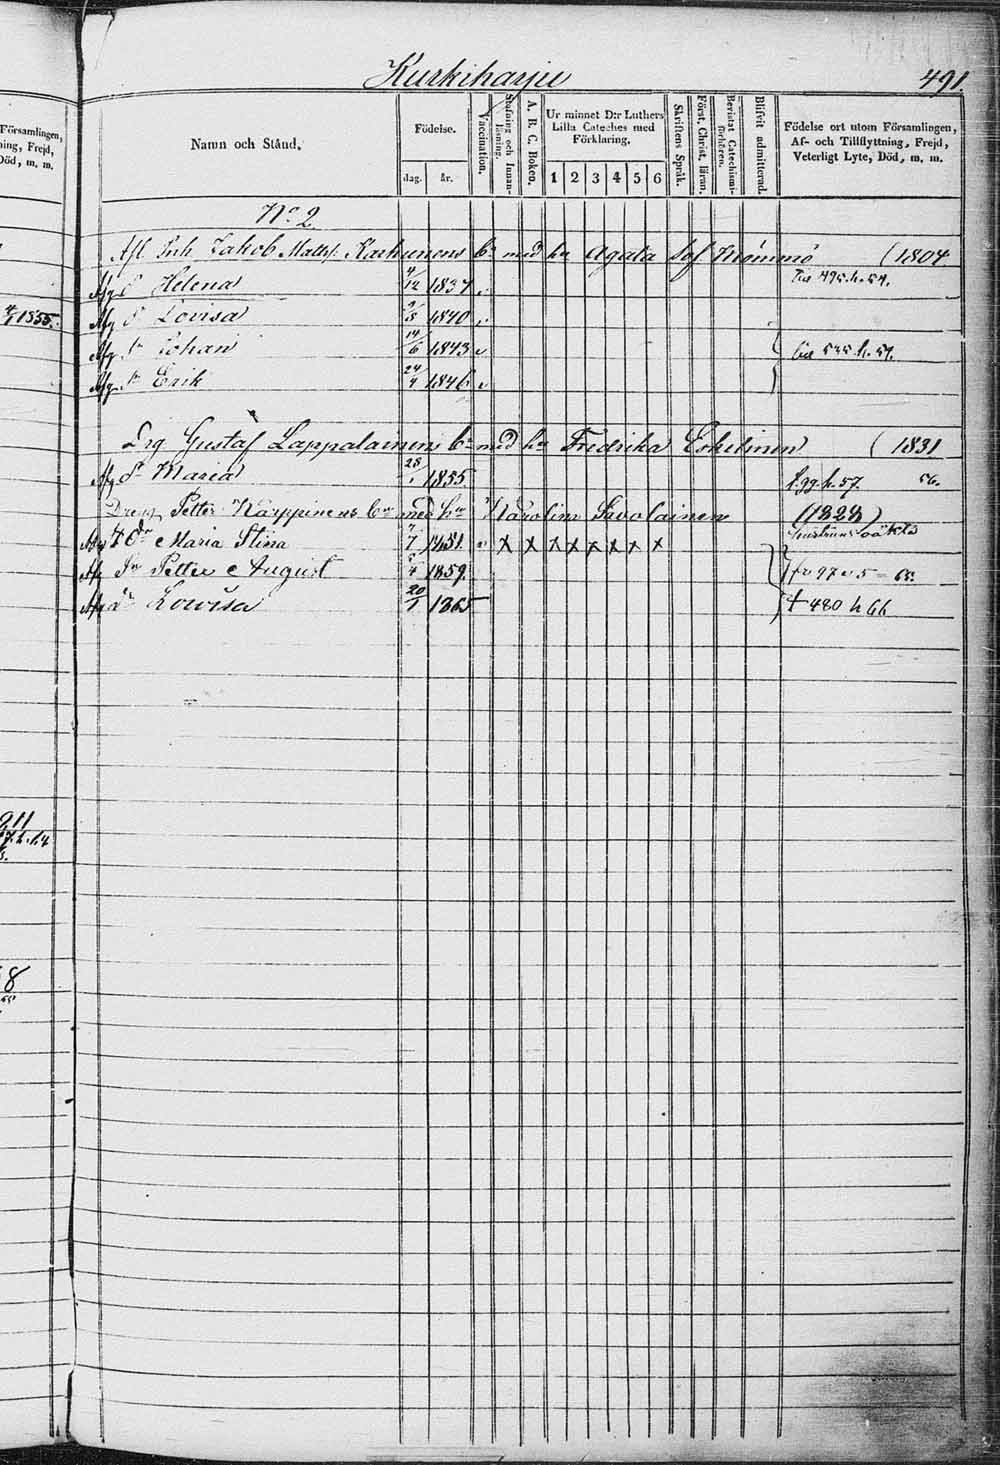 Kurkiharju
491.
Församlingen,
ning, Frejd,
Död, m. m.
Namn och Stånd.
Födelse.
dag.
år.
Vaccination.
Stafning och Innan-
läsning.
A. B. C. Boken.
Ur minnet D:r Luthers
Lilla Cateches med
Förklaring.
1 2 3 4 5 6
Skriftens Språk.
Först. Christ. läran.
Bevistat Catechismi-
förhören.
Blifvit admitterad.
Födelse ort utom Församlingen,
Af- och Tillflyttning, Frejd,
Veterligt Lyte, Död, m. m.
No 2
Jakob Matts. Karhunens bn med hu Agata Sof. (1804
Helena 4/12 1837
Lovisa 9/8 1840
Johan 14/6 1843
Erik 24/4 1846
Drg Gustaf Lappalainens bn med hu Fredrika Eskelinen (1831
Maria 28/1 1855 f. 99. h. 57. 56.
Dreng Petter Karppinens bn med hu Karolina Savolainen (1828)
Dr Maria Stina 7/7 1851 x x x x x x x x
Sn Petter August 1859
Dr Lowisa 20/1 1865 480 h 66
4/1 1855.
911
8